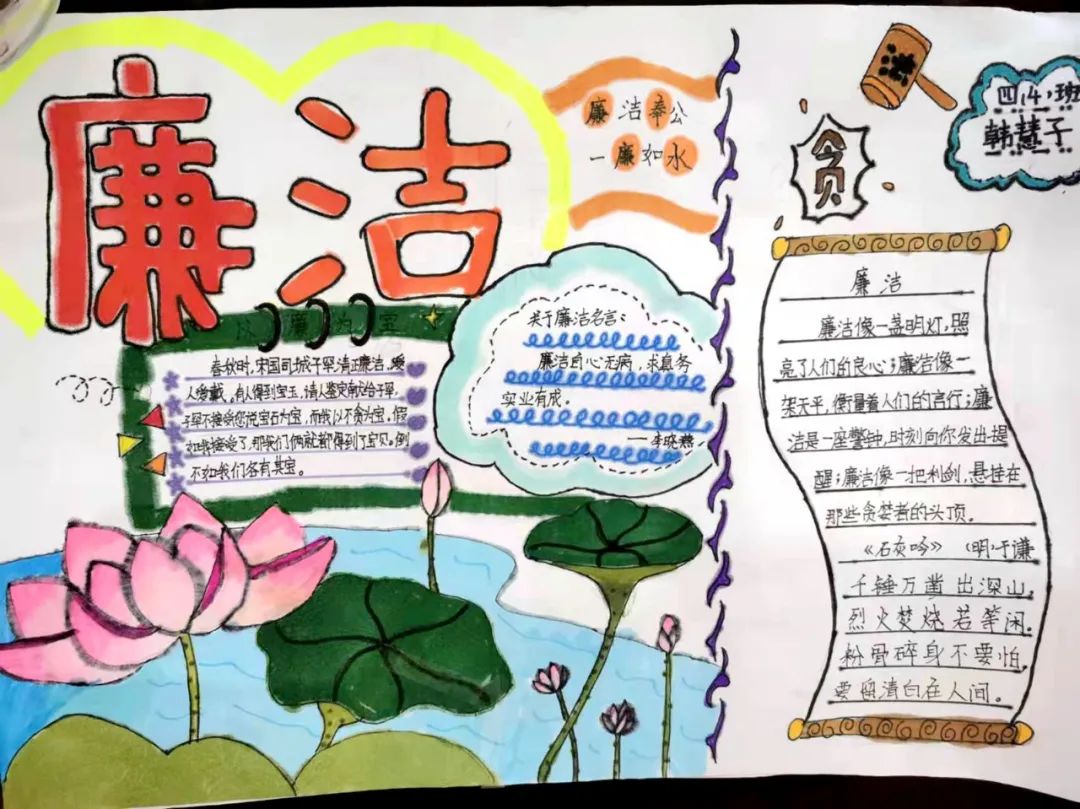 廉洁
廉洁奉公
一廉如水
廉
为宝
春秋时,宋国司城子罕清正廉洁,受
人爱戴。有人得到宝玉,请人鉴定献给子罕,
子罕不接受,您说宝石为宝,而我以不贪为宝,假
如我接受了,那我们俩就都得到了宝贝,倒
不如我们各有其宝。
关于廉洁名言:
廉洁自心无病,求真务
实业有成。
——李晓燕
清
贪
四14,班
韩慧子
廉洁
廉洁像一盏明灯,照
亮了人们的良心;廉洁像一
架天平,衡量着人们的言行;廉
洁是一座警钟,时刻向你发出提
醒;廉洁像一把利剑,悬挂在
那些贪婪者的头顶。
《石灰吟》(明)于谦
千锤万凿出深山,
烈火焚烧若等闲。
粉骨碎身不要怕,
要留清白在人间。